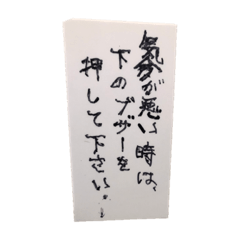 気分が悪い時は、
下のブザーを
押して下さい。